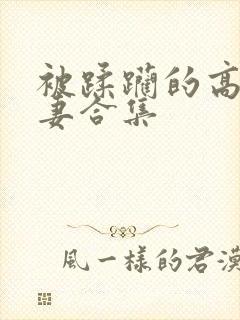 被蹂躏的高
妻合集
風一様的君漠